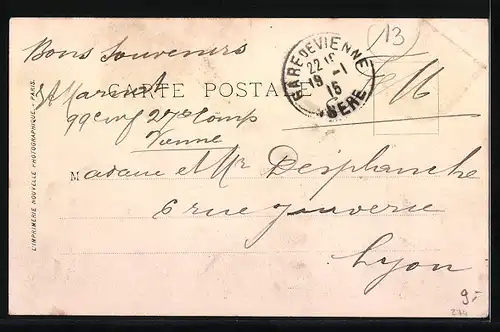 Bons Souvenirs
13
CARTE POSTALE
GARE DE VIENNE
22 15
19 -1
15
ISERE
99e inf 27e Comp
Vienne
Madame et Mr Desplanche
6 rue Jouverie
Lyon
L'IMPRIMERIE NOUVELLE PHOTOGRAPHIQUE - PARIS.
9.-
274